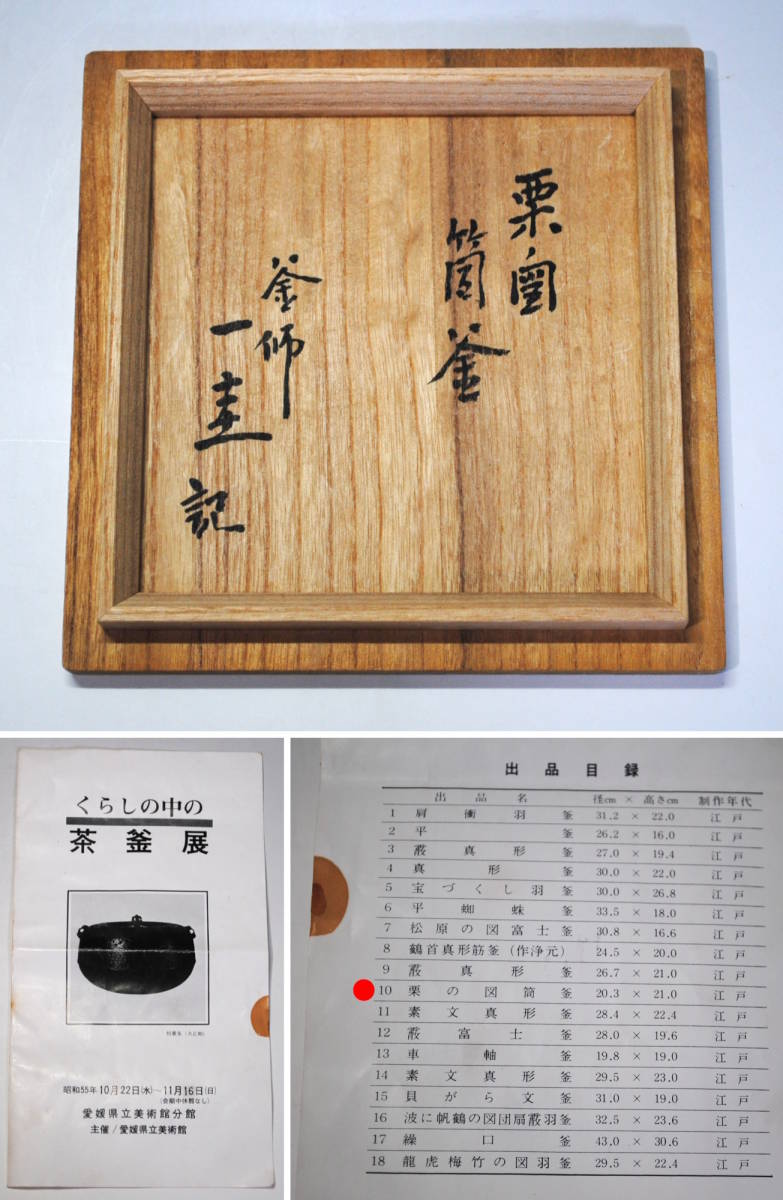 栗圖
筒釜
釜師
一圭
記
くらしの中の
茶釜展
昭和55年10月22日(水)～11月16日(日)
(会期中休館なし)
愛媛県立美術館分館
主催/愛媛県立美術館
出品目録
出品名 径cm × 高さcm 制作年代
1 肩衝羽釜 31.2 × 22.0 江戸
2 平釜 26.2 × 16.0 江戸
3 霰真形釜 27.0 × 19.4 江戸
4 真形釜 30.0 × 22.0 江戸
5 宝づくし羽釜 30.0 × 26.8 江戸
6 平蜘蛛釜 33.5 × 18.0 江戸
7 松原の図富士釜 30.8 × 16.6 江戸
8 鶴首真形筋釜(作浄元) 24.5 × 20.0 江戸
9 霰真形釜 26.7 × 21.0 江戸
10 栗の図筒釜 20.3 × 21.0 江戸
11 素文真形釜 28.4 × 22.4 江戸
12 霰富士釜 28.0 × 19.6 江戸
13 車軸釜 19.8 × 19.0 江戸
14 素文真形釜 29.5 × 23.0 江戸
15 貝がら文釜 31.0 × 19.0 江戸
16 波に帆鶴の図団扇霰羽釜 32.5 × 23.6 江戸
17 繰口釜 43.0 × 30.6 江戸
18 龍虎梅竹の図羽釜 29.5 × 22.4 江戸